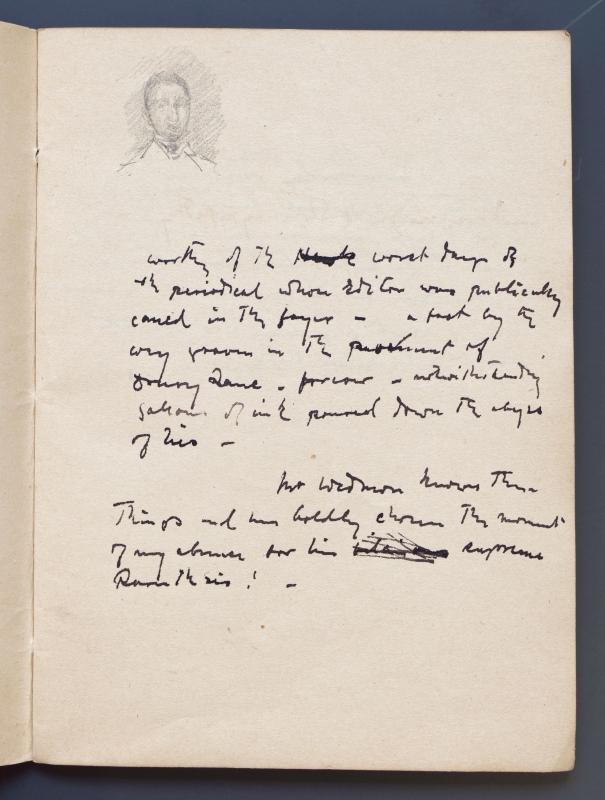 worthy of the worst days of
the periodical whose Editor was publickly
caned in the foyer — a fact by the
way graven in the of
Drury Lane - forever - notwithstanding
gallons of ink poured down the abyss
of lies —
Mr Wedmore knows these
things and has boldly chosen the moment
of my absence for his supreme
! —